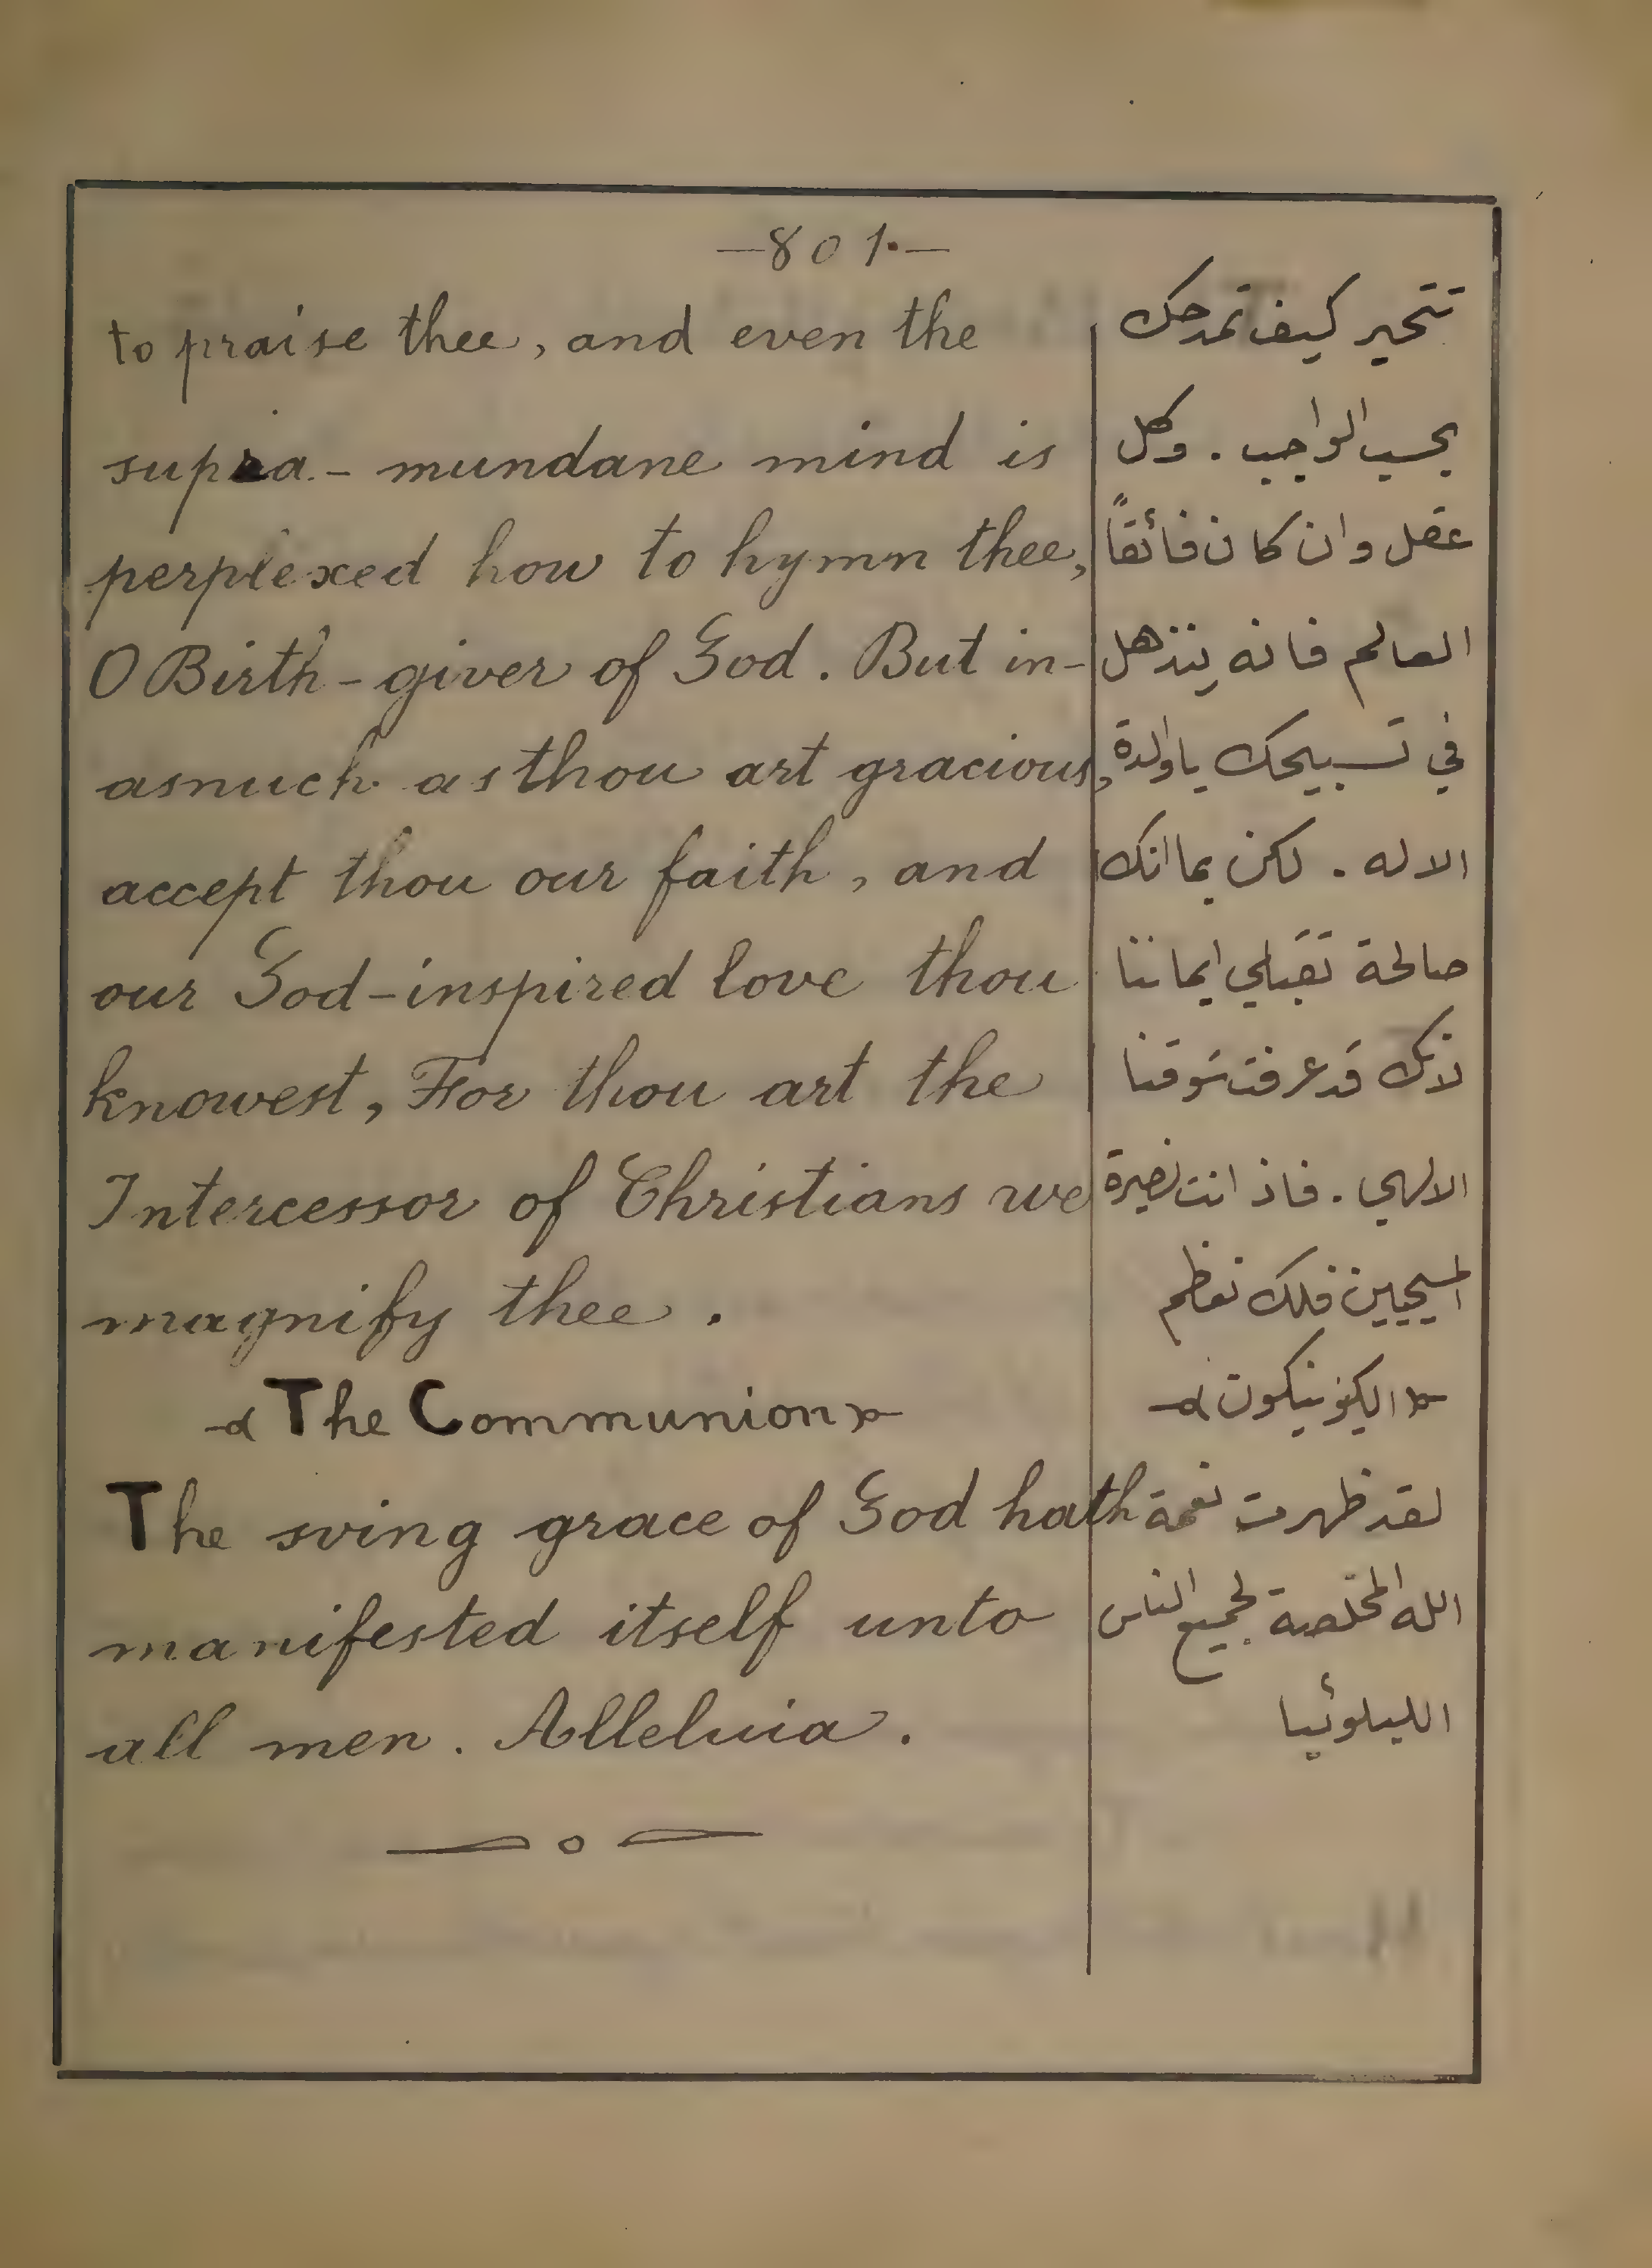 —801.—
to praise thee, and even the
supra-mundane mind is
perplexed how to hymn thee,
O Birth-giver of God. But in-
asmuch as thou art gracious,
accept thou our faith, and
our God-inspired love thou
knowest, For thou art the
Intercessor of Christians we
magnify thee.
The Communion
The sving grace of God hath
manifested itself unto
all men. Alleluia.
تتحير كيف تمدحك
بحسب الواجب. وكل
عقل وان كان فائقاً
العالم فانه ينذهل
في تسبيحك يا والدة
الاله. لكن بما انك
صالحة تقبلي ايماننا
لانك قد عرفت شوقنا
الالهي. فاذ انت نصيرة
المسيحيين فلك نعظم
الكينونيكون
لقد ظهرت نعمة
الله المخلصة لجميع الناس
الليلوئيا